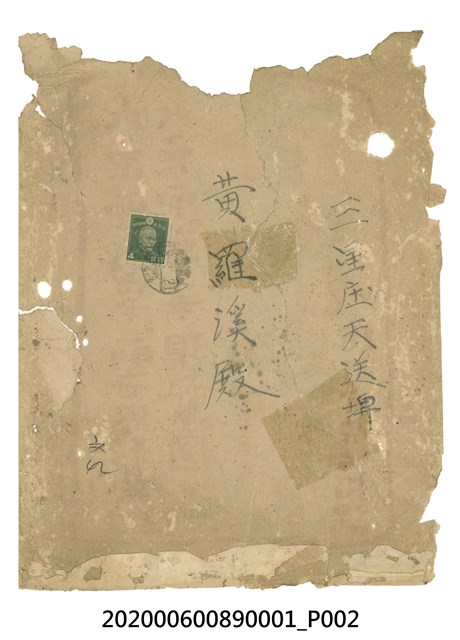 三星庄天送埤
黃羅溪殿
4
202000600890001_P002